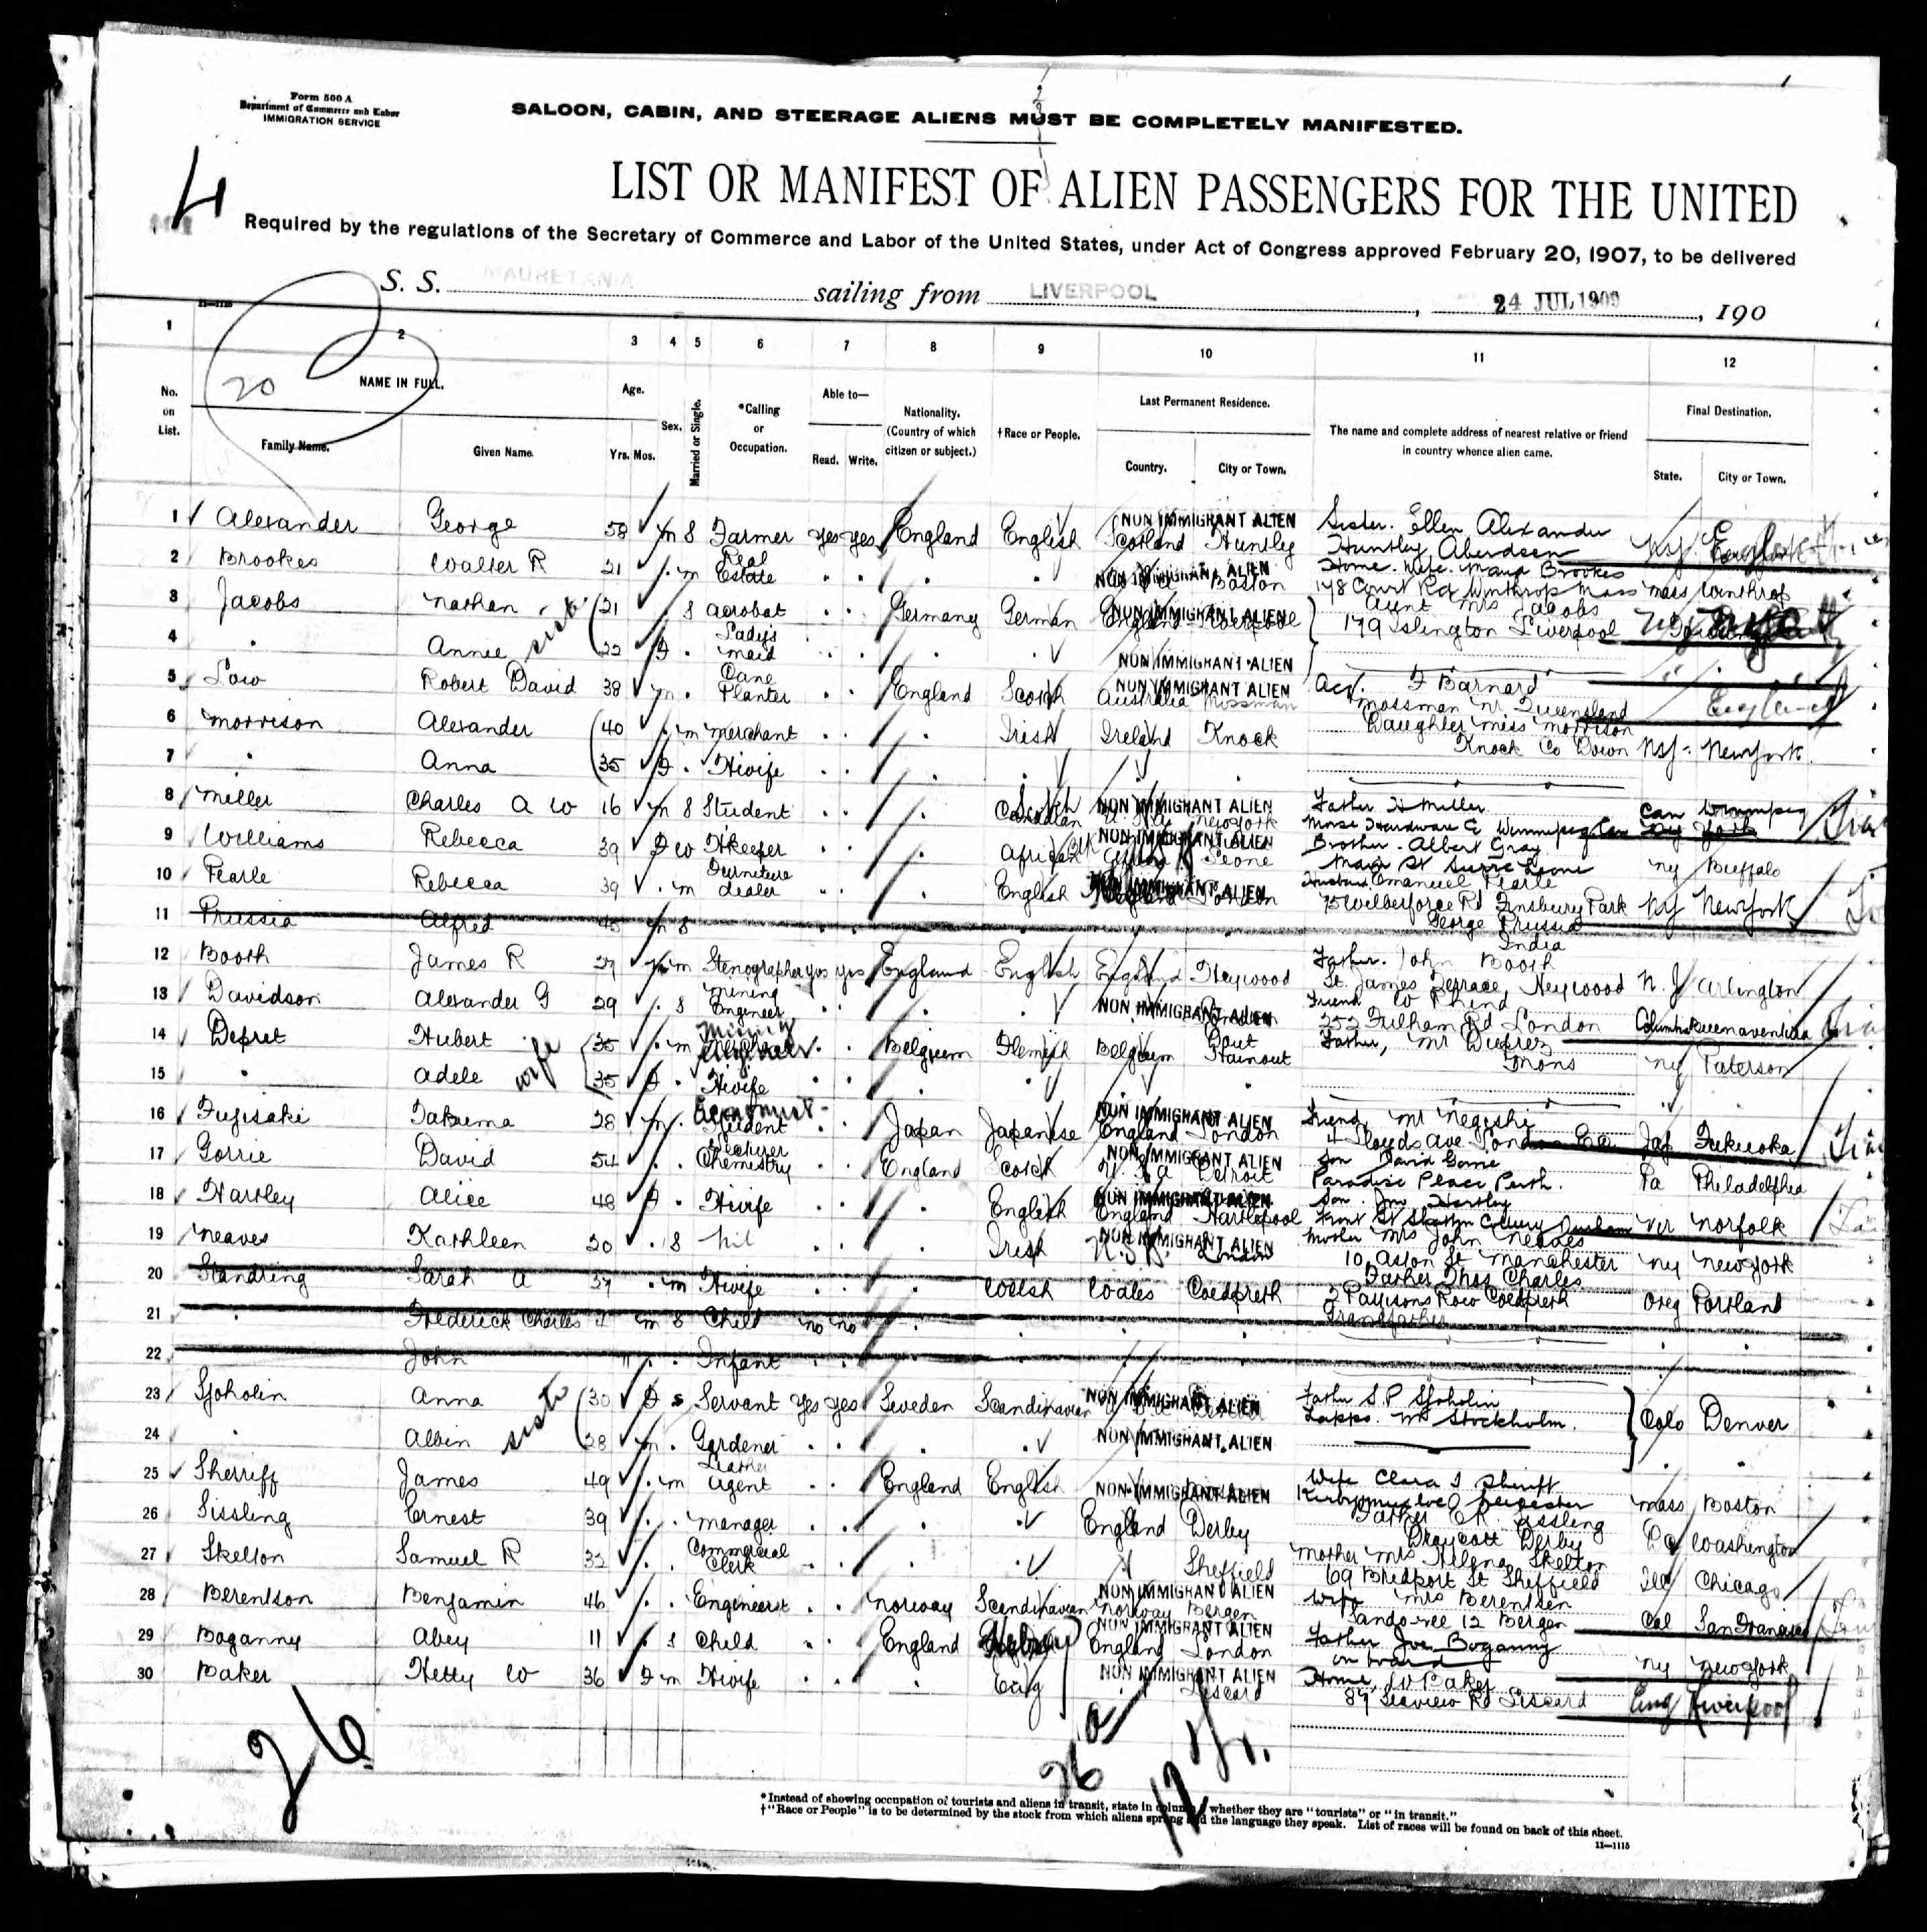 Form 500 A
Department of Commerce and Labor
IMMIGRATION SERVICE
SALOON, CABIN, AND STEERAGE ALIENS MUST BE COMPLETELY MANIFESTED.
4
LIST OR MANIFEST OF ALIEN PASSENGERS FOR THE UNITED
Required by the regulations of the Secretary of Commerce and Labor of the United States, under Act of Congress approved February 20, 1907, to be delivered
S. S. MAURETANIA sailing from LIVERPOOL, 24 JUL 1909, 190
1 2 3 4 5 6 7 8 9 10 11 12
20
No. on List. NAME IN FULL. Family Name. Given Name. Age. Yrs. Mos. Sex. Married or Single. *Calling or Occupation. Able to— Read. Write. Nationality. (Country of which citizen or subject.) †Race or People. Last Permanent Residence. Country. City or Town. The name and complete address of nearest relative or friend in country whence alien came. Final Destination. State. City or Town.
1 Alexander George 58 m S Farmer yes yes England English NON IMMIGRANT ALIEN Scotland Huntly Sister. Ellen Alexander Huntly Aberdeen
2 Brookes Walter R 21 . m Real Estate NON IMMIGRANT ALIEN Boston Home. Wife. Maud Brookes 178 Court Rd Winthrop Mass Mass Winthrop
3 Jacobs Nathan (21 S Acrobat Germany German NON IMMIGRANT ALIEN England Liverpool Aunt Mrs Jacobs 179 Islington Liverpool
4 " Annie 22 F . Lady's Maid NON IMMIGRANT ALIEN
5 Low Robert David 38 m . Cane Planter England Scotch NON IMMIGRANT ALIEN Australia Mossman F Barnard Mossman Nr Queensland England
6 Morrison Alexander (40 . m Merchant Irish Ireland Knock Daughter Miss Morrison Knock Co Down NY New York
7 " Anna (35 F . H'wife
8 Miller Charles A W 16 m S Student Scotch Canadian NON IMMIGRANT ALIEN U.S.A. New York Father Miller Hardware Co Winnipeg Can Can Winnipeg
9 Williams Rebecca 39 F W H'keeper African NON IMMIGRANT ALIEN Leone Brother. Albert Gray Main St Leone NY Buffalo
10 Pearle Rebecca 39 . m Furniture dealer English NON IMMIGRANT ALIEN London Husband Emanuel Pearle 75 Wilberforce Rd Finsbury Park NY New York
11 Prussia Alfred 45 m S George Prussia India
12 Booth James R 27 m Stenographer yes yes England English England Heywood Father. John Booth St. James Terrace, Heywood N.J Arlington
13 Davidson Alexander G 29 . S Mining Engineer NON IMMIGRANT ALIEN London Friend W Rhind 252 Fulham Rd London Buenaventura
14 Depret Hubert (35 . m Belgium Flemish Belgium Hainout Father, Mr Mons NY Paterson
15 " Adele wife (35 F . H'wife
16 Fujisaki Takuma 28 m . Student Japan Japanese NON IMMIGRANT ALIEN England London Friend, Mr Negishi 4 Lloyds Ave London E.C. Jap Fukuoka
17 Gorrie David 54 . . Lecturer Chemistry England Scotch NON IMMIGRANT ALIEN U.S.A Detroit Son David Gorrie Paradise Place Perth. Pa Philadelphia
18 Hartley Alice 48 F . H'wife English NON IMMIGRANT ALIEN England Hartlepool Son. Jno Hartley Front St Durham Vir Norfolk
19 Neaves Kathleen 20 . S Nil Irish NON IMMIGRANT ALIEN London Mother Mrs John Neaves 10, Aston St Manchester NY New York
20 Standring Sarah A 37 . m H'wife Welsh Wales Coedpoeth Father Thos Charles Row Coedpoeth Oreg Portland
21 " Frederick Charles m S Child no no Grandfather
22 John . . Infant
23 Sjoholin Anna (30 F S Servant yes yes Sweden Scandinavian NON IMMIGRANT ALIEN Father S.P Sjoholin Stockholm. Colo Denver
24 " Albin (28 m . Gardener NON IMMIGRANT ALIEN
25 Sherriff James 49 . m Leather Agent England English NON IMMIGRANT ALIEN Wife Clara S Sheriff Leicester Mass Boston
26 Sissling Ernest 39 . . Manager England Derby Father E.R. Sissling Draycott Derby DC Washington
27 Skelton Samuel R 32 . . Commercial Clerk Sheffield Mother Mrs Helena Skelton 69 Bridport St Sheffield Ill Chicago
28 Berentson Benjamin 46 . . Engineer Norway Scandinavian NON IMMIGRANT ALIEN Norway Bergen Wife Mrs Berentsen 12 Bergen Cal San Francisco
29 Boganny Abey 11 . S Child England Hebrew NON IMMIGRANT ALIEN England London Father Joe Boganny on board NY New York
30 Baker Hetty W 36 F m H'wife Eng NON IMMIGRANT ALIEN Liscard Home, W Baker 89 Seaview Rd Liscard Eng Liverpool
26
26
*Instead of showing occupation of tourists and aliens in transit, state in column whether they are "tourists" or "in transit."
†"Race or People" is to be determined by the stock from which aliens sprang and the language they speak. List of races will be found on back of this sheet.
11—1115